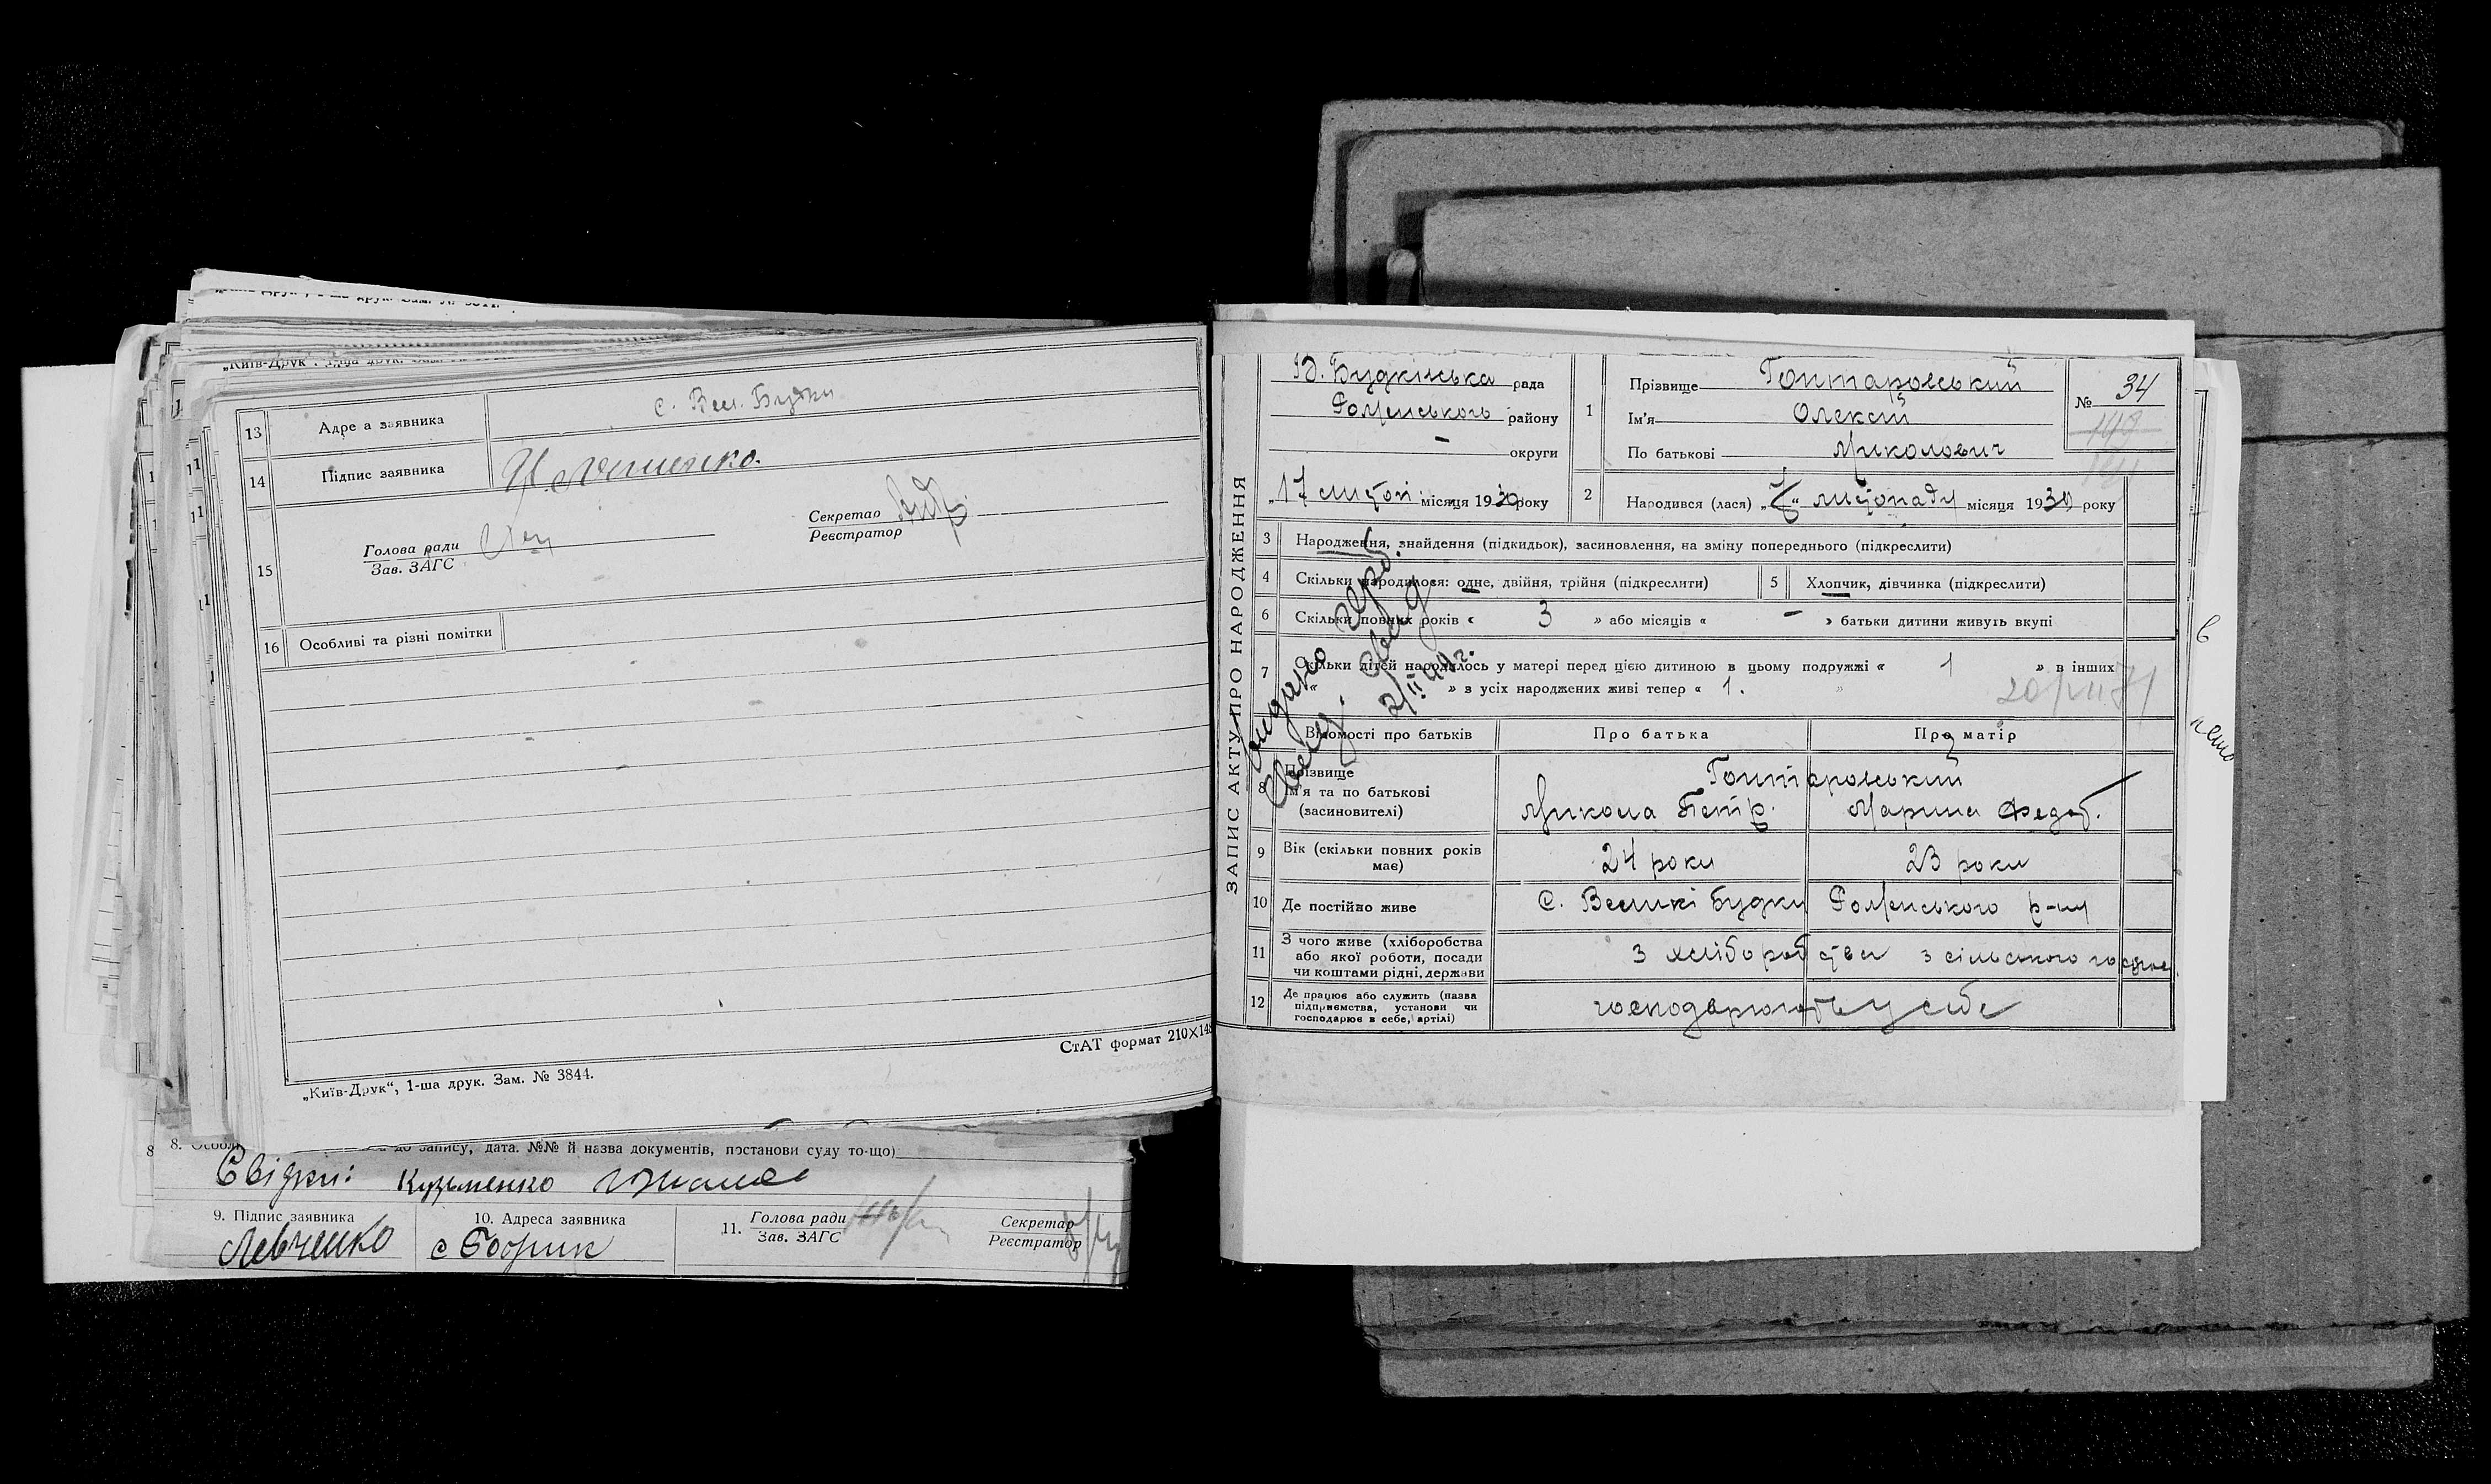 „Київ-Друк“, 1-ша друк. Зам.
13 Адреса заявника с. Вел. Будки
14 Підпис заявника
15 Голова ради
Зав. ЗАГС
Секретар
Реєстратор
16 Особливі та різні помітки
СтАТ формат 210×148
„Київ-Друк“, 1-ша друк. Зам. № 3844.
8. до запису, дата. №№ й назва документів, постанови суду то-що)
Свідки: Кузьменко
9. Підпис заявника
Левченко
10. Адреса заявника
с Бобрик
11. Голова ради
Зав. ЗАГС
Секретар
Реєстратор
ЗАПИС АКТУ ПРО НАРОДЖЕННЯ
В. Будківська рада
Роменського району
- округи
„17 листоп місяця 1930 року
1 Прізвище Гонтаровський
Ім'я Олексій
По батькові Миколович
№ 34
149
2 Народився (лася) „7“ листопаду місяця 1930 року
3 Народження, знайдення (підкидьок), засиновлення, на зміну попереднього (підкреслити)
4 Скільки народилося: одне, двійня, трійня (підкреслити)
5 Хлопчик, дівчинка (підкреслити)
6 Скільки повних років « 3 » або місяців « - » батьки дитини живуть вкупі
7 Скільки дітей народилось у матері перед цією дитиною в цьому подружжі « 1 » в інших
« » з усіх народжених живі тепер « 1. »
Видано
2/II 44 г.
Відомості про батьків Про батька Про матір
8 Прізвище
Ім'я та по батькові
(засиновителі)
Гонтаровський
Микола Петр. Марина Федоб.
9 Вік (скільки повних років має) 24 роки 23 роки
10 Де постійно живе С. Великі Будки Роменського р-ну
11 З чого живе (хліборобства
або якої роботи, посади
чи коштами рідні, держави
з хліборобства з сільського господ.
12 Де працює або служить (назва
підприємства, установи чи
господарює в себе, артілі)
господарюють у себе